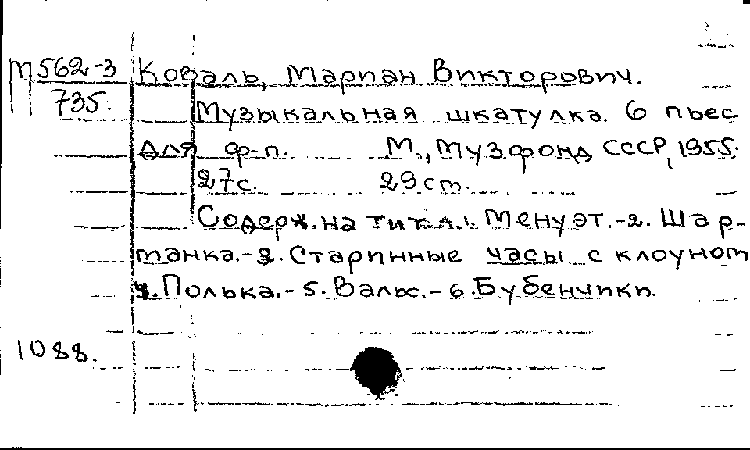 М 562-3 Коваль, Мариан Викторович.
735. Музыкальная шкатулка. 6 пьес
для ф-п. М., Музфонд СССР, 1955.
27с. 29 cm.
Содерж. на тит. л.: Менуэт.-2. Шар-
манка.-3. Старинные часы с клоуном
4. Полька.-5. Вальс.-6. Бубенчики.
1088.